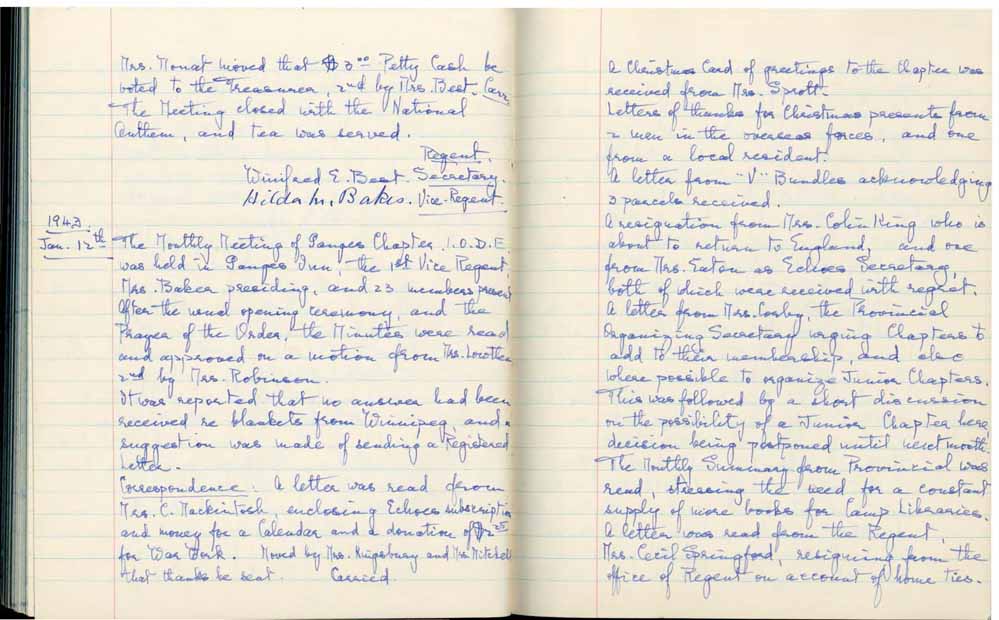 Mrs. Mouat moved that $3.00 Petty Cash be
voted to the Treasurer, 2nd by Mrs. Best. Carr.
The Meeting closed with the National
Anthem, and tea was served.
Regent.
Winifred E. Best. Secretary.
Hilda M. Baker. Vice-Regent.
1943.
Jan. 12th
The Monthly Meeting of Ganges Chapter I.O.D.E.
was held in Ganges Inn, the 1st Vice Regent,
Mrs. Baker presiding, and 23 members present
After the usual opening ceremony, and the
Prayer of the Order, the Minutes were read
and approved on a motion from Mrs. Lowther
2nd by Mrs. Robinson.
It was reported that no answer had been
received re blankets from Winnipeg, and a
suggestion was made of sending a Registered
Letter.
Correspondence: A letter was read from
Mrs. C. Mackintosh, enclosing Echoes subscription
and money for a Calendar and a donation of $2.25
for War Work. Moved by Mrs. Kingsbury and Mrs. Mitchell
that thanks be sent. Carried.
A Christmas Card of greetings to the Chapter was
received from Mrs. Sprott.
Letters of thanks for Christmas presents from
2 men in the overseas forces, and one
from a local resident.
A letter from "V" Bundles acknowledging
3 parcels received.
A resignation from Mrs. Colin King who is
about to return to England, and one
from Mrs. Eaton as Echoes Secretary,
both of which were received with regret.
A letter from Mrs. Corby, the Provincial
Organizing Secretary urging Chapters to
add to their membership, and also
where possible to organize Junior Chapters.
This was followed by a short discussion
on the possibility of a Junior Chapter here
decision being postponed until next month.
The Monthly Summary from Provincial was
read, stressing the need for a constant
supply of more books for Camp Libraries.
A letter was read from the Regent,
Mrs. Cecil Springford, resigning from the
office of Regent on account of home ties.